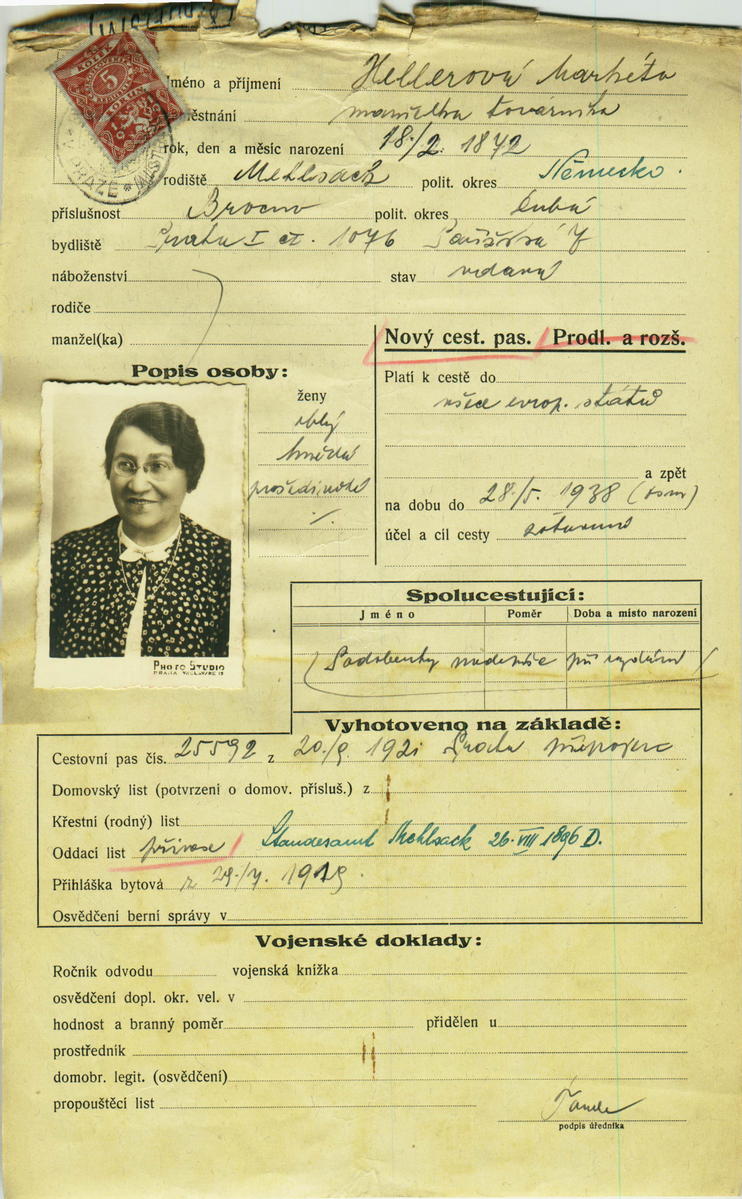 5
V PRAZE
Jméno a příjmení Hellerová Markéta
městnání manželka továrníka
rok, den a měsíc narození 18./2. 1872
rodiště Mehlsack polit. okres Německo.
příslušnost Brocno polit. okres Dubá
bydliště Praha I čt. 1076 7
náboženství stav vdaná
rodiče
manžel(ka)
Nový cest. pas. Prodl. a rozš.
Popis osoby:
ženy
oblý
hnědé
prošedivělé
./.
Platí k cestě do
všech evrop. států
a zpět
na dobu do 28./5. 1938
účel a cíl cesty zotavení
PHOTO STUDIO
Spolucestující:
Jméno Poměr Doba a místo narození
(Podobenky při vydání)
Vyhotoveno na základě:
Cestovní pas čís. 25592 z 1921 Praha
Domovský list (potvrzení o domov. přísluš.) z
Křestní (rodný) list
Oddací list přinese Standesamt Mehlsack 26. VIII 1896 D.
Přihláška bytová z 1919
Osvědčení berní správy v
Vojenské doklady:
Ročník odvodu vojenská knížka
osvědčení dopl. okr. vel. v
hodnost a branný poměr přidělen u
prostředník
domobr. legit. (osvědčení)
propouštěcí list
podpis úředníka